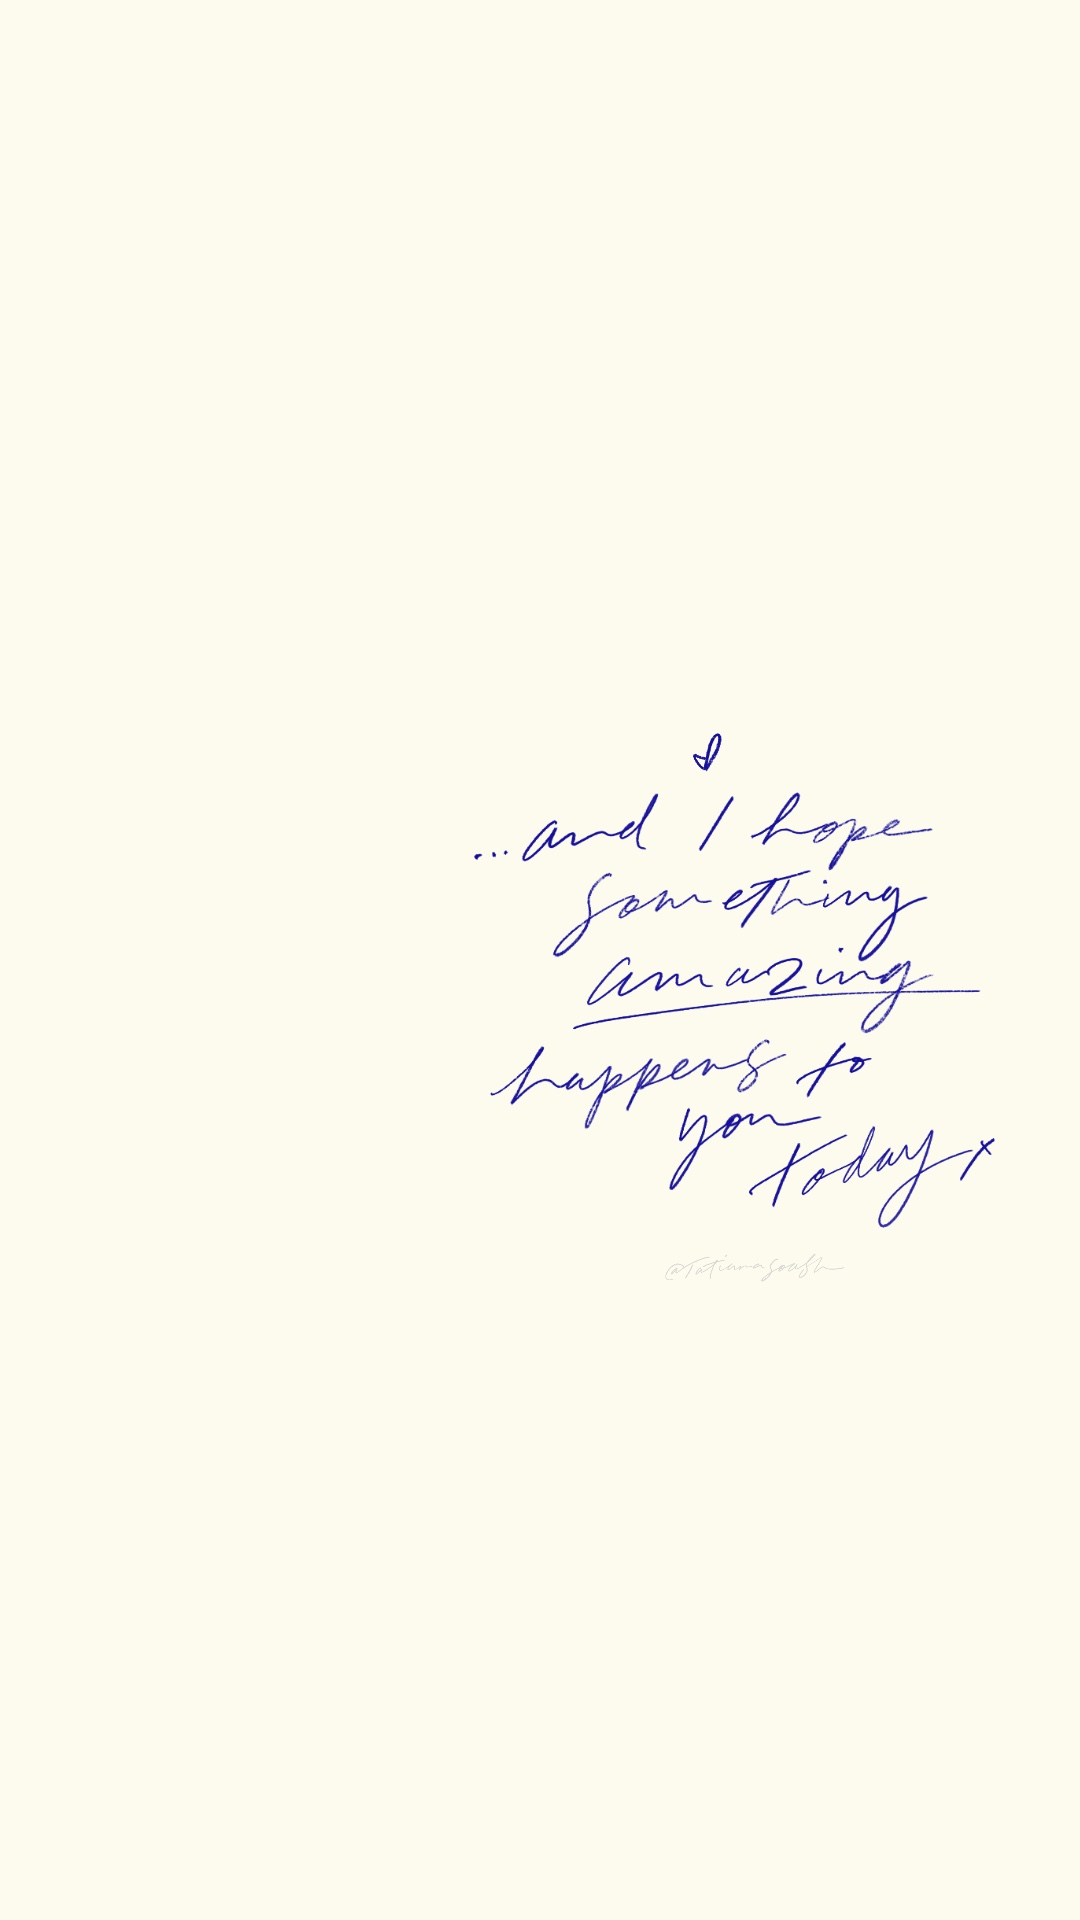 ...and I hope
something
amazing
happens to
you
today x
@Tatianasoash